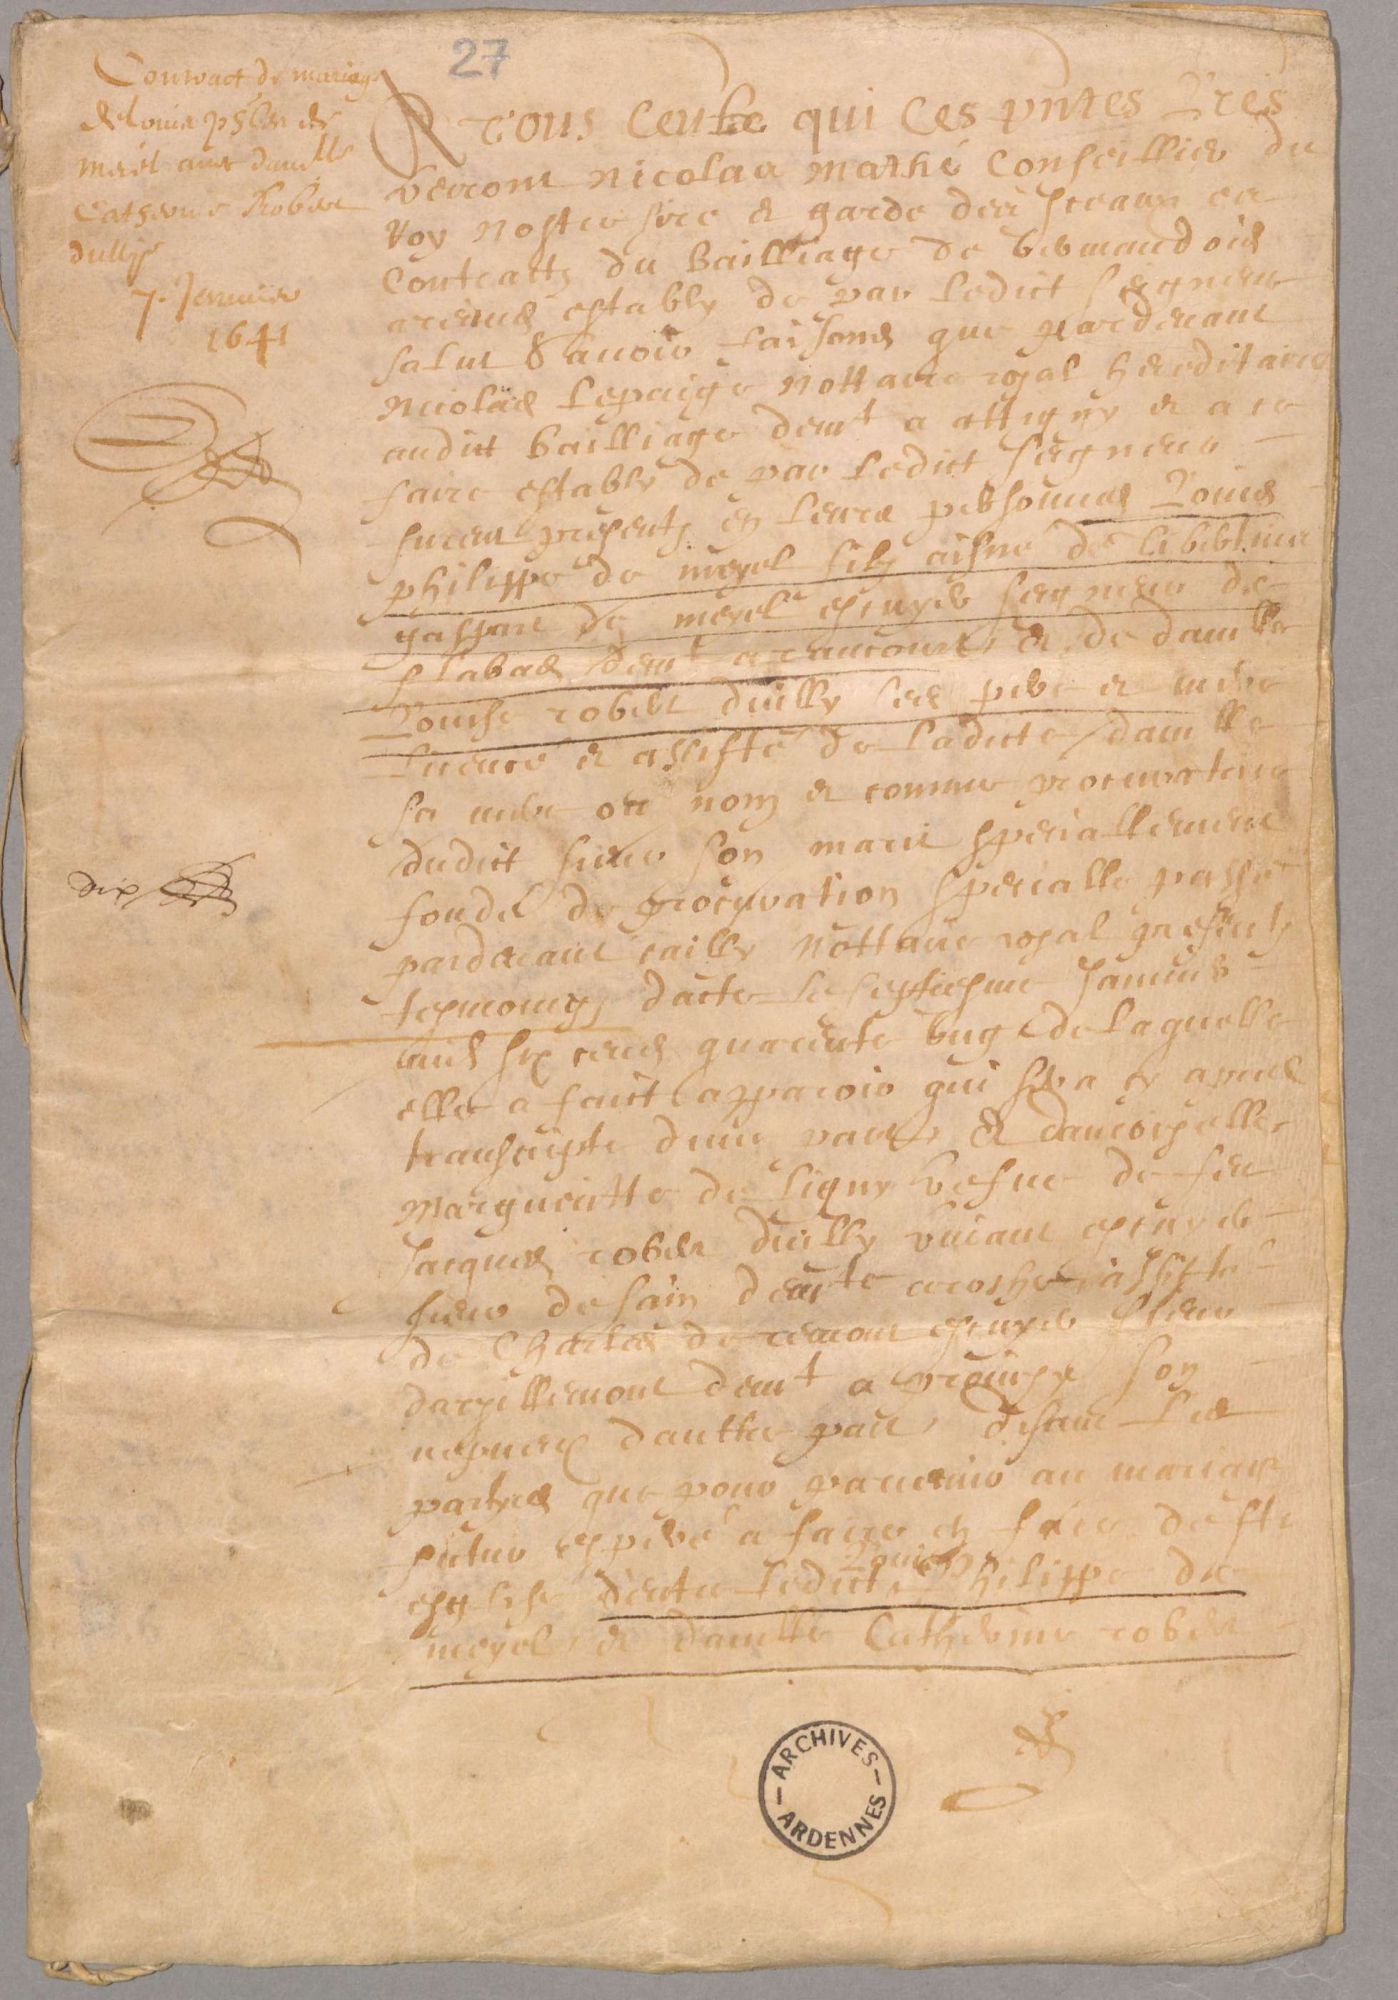 27
Contract de mariage
de Louis Phles de
Meiel avec damlle
Catherine Robert
dully
7. Jenvier
1641
A tous ceulx qui ces pntes lres
verront Nicolas Mathé Conseillier du
Roy nostre sire et garde des sceaux es
Contractz du Bailliage de Vermandois
estably de par ledict seigneur
salut scavoir faisons que pardevant
Nicolas Lepaige nottaire royal hereditaire
audict bailliage demt a attigny et a ce
faire estably de par ledict seigneur
furent presentz en leurs personnes Louis
philippe de meyel filz aisne de
gaspart de meyel escuyer seigneur de
demt a raucourt, et de damlle
Louise robert duilly ses pere et mere
licencé et assisté de ladicte damlle
sa mere ou nom et comme procuratrice
dudict sieur son marit speciallement
fondé de procuration specialle passé
pardevant cailly nottaire royal presentz
tesmoings dacte le septiesme Janvier
mil six cens quarente ung de laquelle
elle a faict apparoir qui sera cy apres
transcripte dune part, et damoiselle
Margueritte de Ligny vefve de feu
Jacques robert duilly vivant escuyer
sieur de sain demte assistée
de Charles de escuyer sieur
demt a son
nepveu daultre part, disant les
partyes que pour parvenir au mariage
futur esperé a faire en face de ste
esglise dentre ledict Louis philippe de
meyel, et damlle Catherine robert
dix
ARCHIVES
ARDENNES